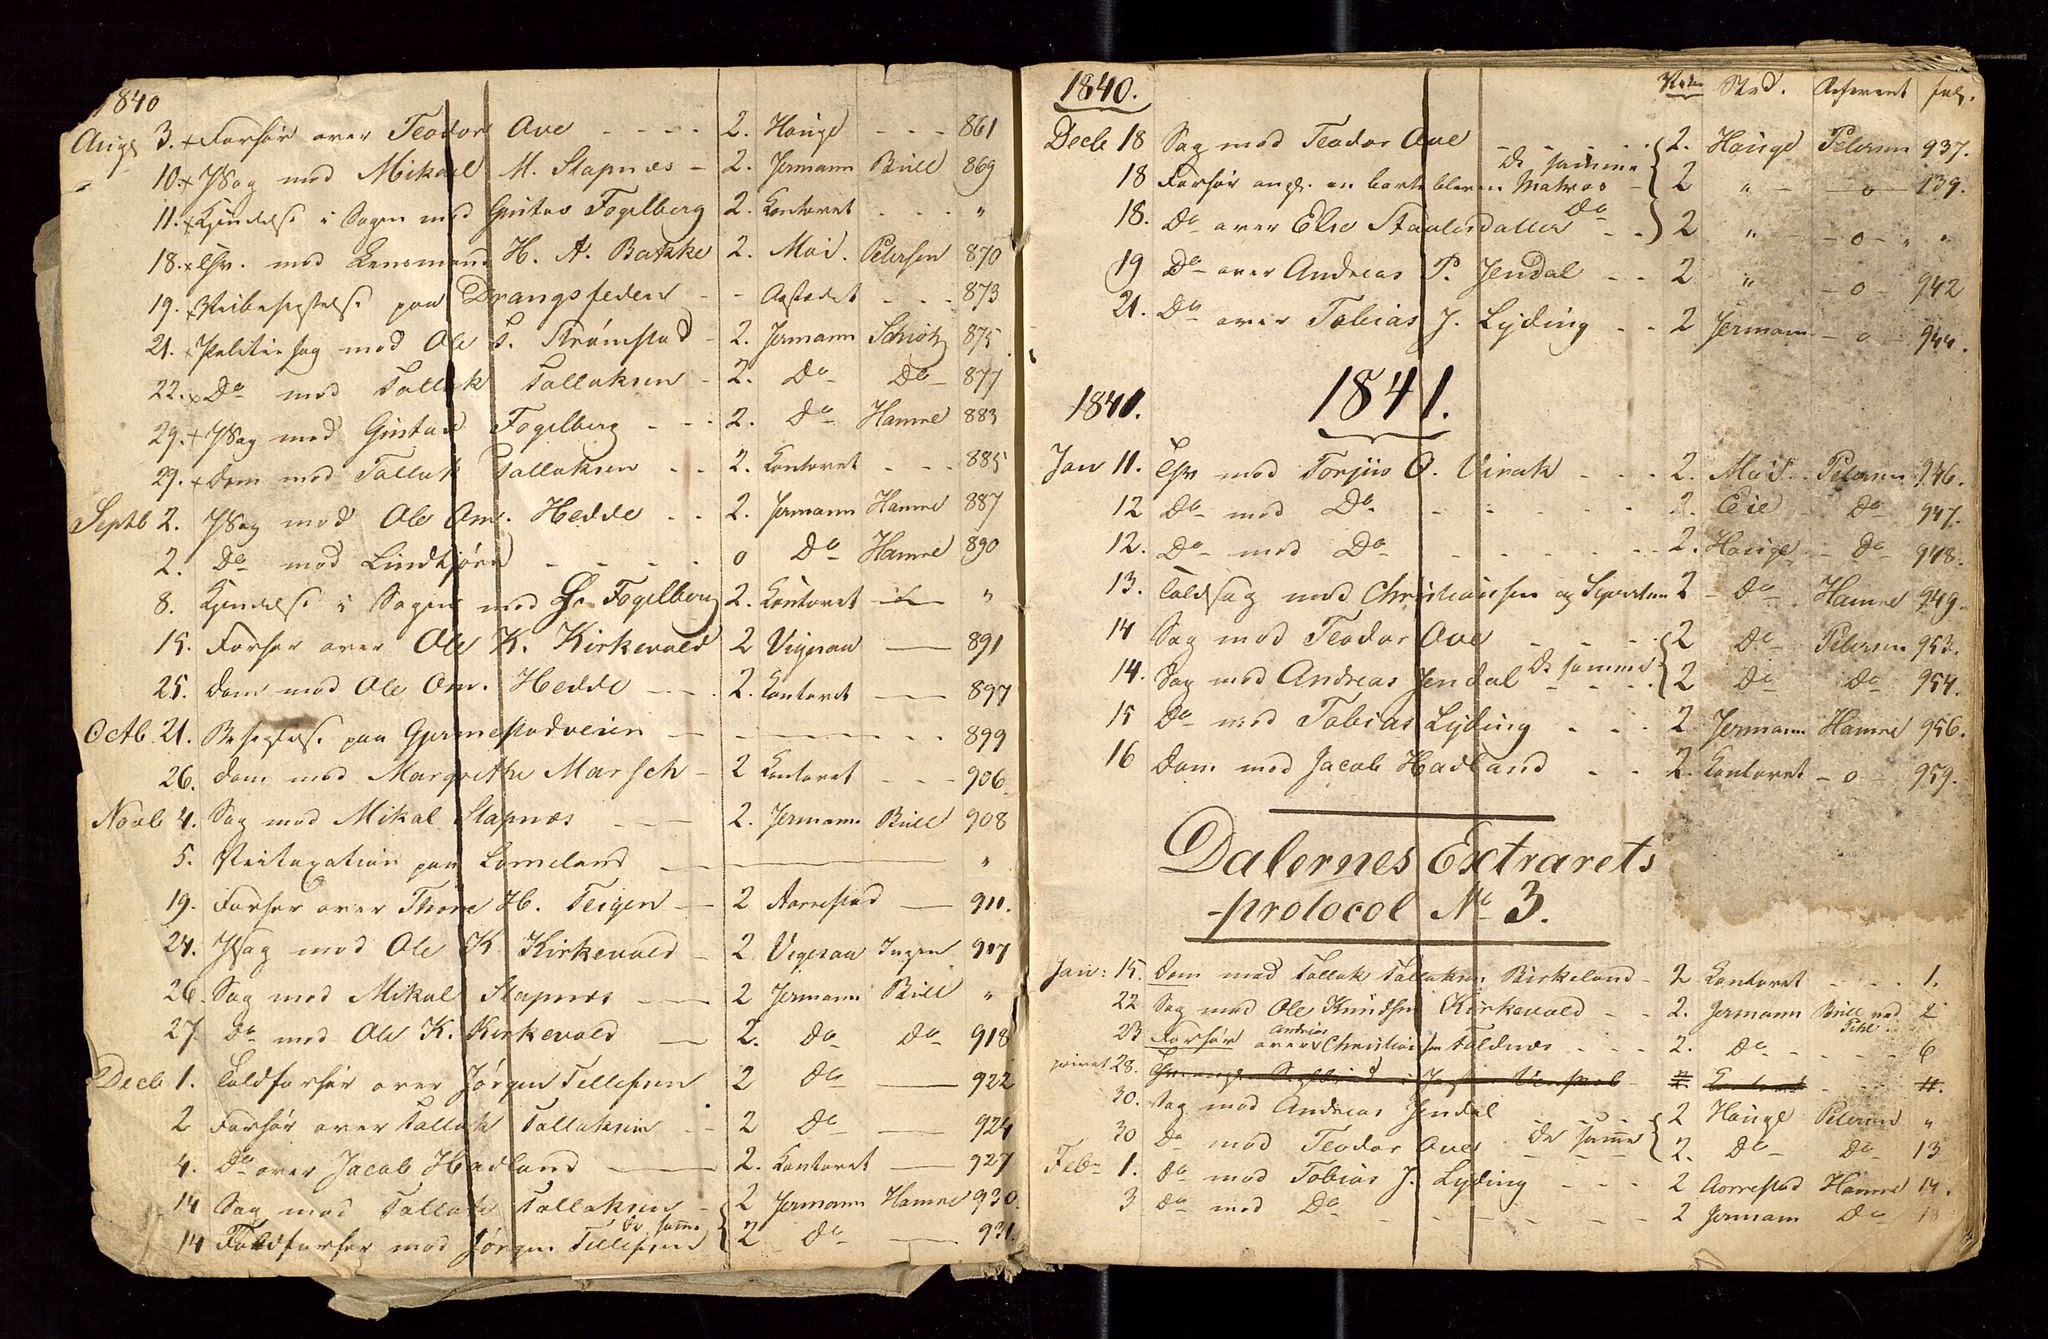 1840
Aug 3. + Forhør over Teodor Ave - - - - 2. Hauge - - - 861
10. + PSag mod Mikael M. Stapnæs - 2. Jermann Buch 869
11. + Kjendelse i Sagen mod Gustav Fogelberg 2. Contoret - - - "
18. + Exr. mod Lensmand H. A. Bakke 2. Moi. Petersen 870
19. + Veibesigtelse paa Drangsfeden - - Aastedet - - - 873
21. + Politie Sag mod Ole S. Strømstad - 2. Jermann Schiøtz 875
22. + Do mod Tallak Tallaksen - 2. Do Do 877
29. + PSag mod Gustav Fogelberg - - - 2. Do Hamre 883
29. + Dom mod Tallak Tallaksen - - 2. Contoret - - - 885
Septb 2. PSag mod Ole Om. Hedde - - 2. Jermann Hamre 887
2. Do mod Lindkjøn - - - - o Do Hamre 890
8. Kjendelse i Sagen mod G. Fogelberg 2. Contoret "
15. Forhør over Ole K. Kirkevold 2 Vigesaa — 891
25. Dom mod Ole Om. Hedde - - - 2. Contoret — 897
Octb 21. Besigtelse paa Gjermestadveien - - - - - - 899
26. Dom mod Margrethe Marsch - 2 Contoret - - - 906
Novb 4. Sag mod Mikal Stapnæs — 2. Jermann Buch 908
5. Veitaxation paa Lomeland — "
19. Forhør over Thore H. Teigen - - 2 Aarrestad — 911.
24. PSag mod Ole K. Kirkevold - 2 Vigesaa Ingen 917
26. Sag mod Mikal Stapnæs — 2 Jermann Buch "
27. Do mod Ole K. Kirkevold — 2. Do Do 918
Decb 1. Toldforhør over Jørgen Tellefsen 2 Do — 922
2 Forhør over Tallak Tallaksen - - 2 Do — 924
4. Do over Jacob Hadland — 2. Contoret — 927
14 Sag mod Tallak Tallaksen - 2 Jermann Hamre 930
14 Toldforhør mod Jørgen Tellefsen De samme 2 Do — 931.
1840.
Vidner Sted. Referent fol.
Decb 18 Sag mod Teodor Ave - - - - 2. Hauge Petersen 937.
18 Forhør angl. en bortebleven Matros De samme 2 " - o - 139.
18. Do over Else Staalesdatter Do - - 2 " - o - "
19 Do over Andreas P. Jendal - - 2 " - o - 942
21. Do over Tobias J. Lyding - - 2 Jermann - o - 944.
1841. 1841.
Jan 11. Exr mod Torjus O. Virak - - - 2. Moi Petersen 946.
12 Do mod Do - - - - - 2. Eeie - Do 947.
12. Do mod Do - - - - - 2. Hauge - Do 948.
13. Toldsag mod Christiansen og Sivertsen 2 - Do - Hamre 949.
14 Sag mod Teodor Ave - - - - 2 Do Petersen 953.
14. Sag mod Andreas Jendal De samme 2 Do Do 954.
15 Do mod Tobias Lyding - - - 2. Jermann Hamre 956.
16 Dom mod Jacob Hadland - - 2. Contoret - o - 959.
Dalernes Extrarets
-protocol No 3.
Jan: 15. Dom mod Tallak Tallaksen Birkeland - 2 Contoret - - - - 1.
22 Sag mod Ole Knudsen Kirkevold - - 2. Jermann Buch ved 2
Pihl.
23 Forhør over Andreas Christiansen Foldnæs - - - 2. Do - - - - - 6
privat 28.
30. Sag mod Andreas Jendal 2 Hauge Petersen "
30 Do mod Teodor Ave - De samme 2. Do Do 13
Febr 1. Do mod Tobias J. Lyding - - - 2 Aarrestad Hamre 14.
3 Do mod Do - - - - - - 2 Jermann Do 18